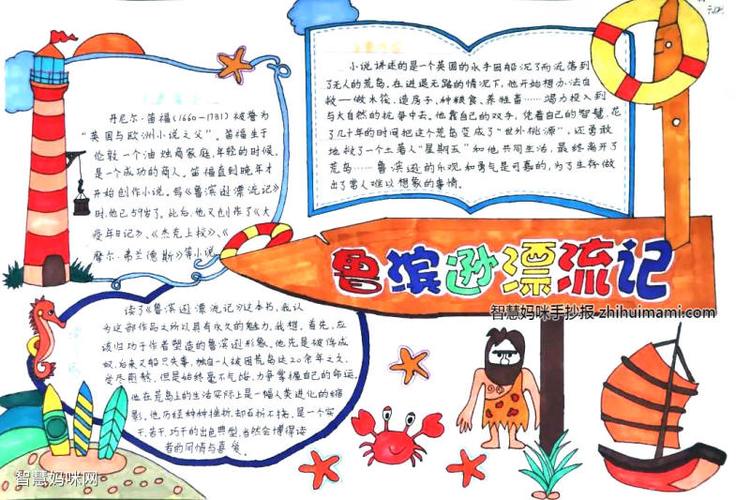 丹尼尔·笛福(1660-1731)被誉为
"英国与欧洲小说之父"。笛福生于
伦敦一个油烛商家庭，年轻的时候，
是一个成功的商人。笛福直到晚年才
开始创作小说，写《鲁滨逊漂流记》
时，他已59岁了。此后，他又创作了《大
疫年日记》、《杰克上校》、《
摩尔·弗兰德斯》等小说
小说讲述的是一个英国的水手因船沉了而流落到
了无人的荒岛，在进退无路的情况下，他开始想办法自
救——做木筏、造房子、种粮食、养牲畜……竭力投入到
与大自然的抗争中去。他靠自己的双手，凭着自己的智慧，花
了几十年的时间把这个荒岛变成了"世外桃源"，还勇敢
地救了一个土著人"星期五"和他共同生活，最终离开了
荒岛……鲁滨逊的乐观和勇气是可嘉的，为了生存做
出了常人难以想象的事情。
鲁滨逊漂流记
智慧妈咪手抄报 zhihuimami.com
读了《鲁滨逊漂流记》这本书，我认
为这部作品之所以具有永久的魅力，我想，首先，应
该归功于作者塑造的鲁滨逊形象。他先是被俘成
奴，后来又船只失事，独自一人被困荒岛达20余年之久，
受尽煎熬，但是始终毫不气馁，力争掌握自己的命运，
他在荒岛上的生活实际上是一幅人类进化的缩
影，他历经种种挫折，却百折不挠，是一个实
干、苦干、巧干的出色典型，当然会博得读
者的同情与喜爱。
智慧妈咪网